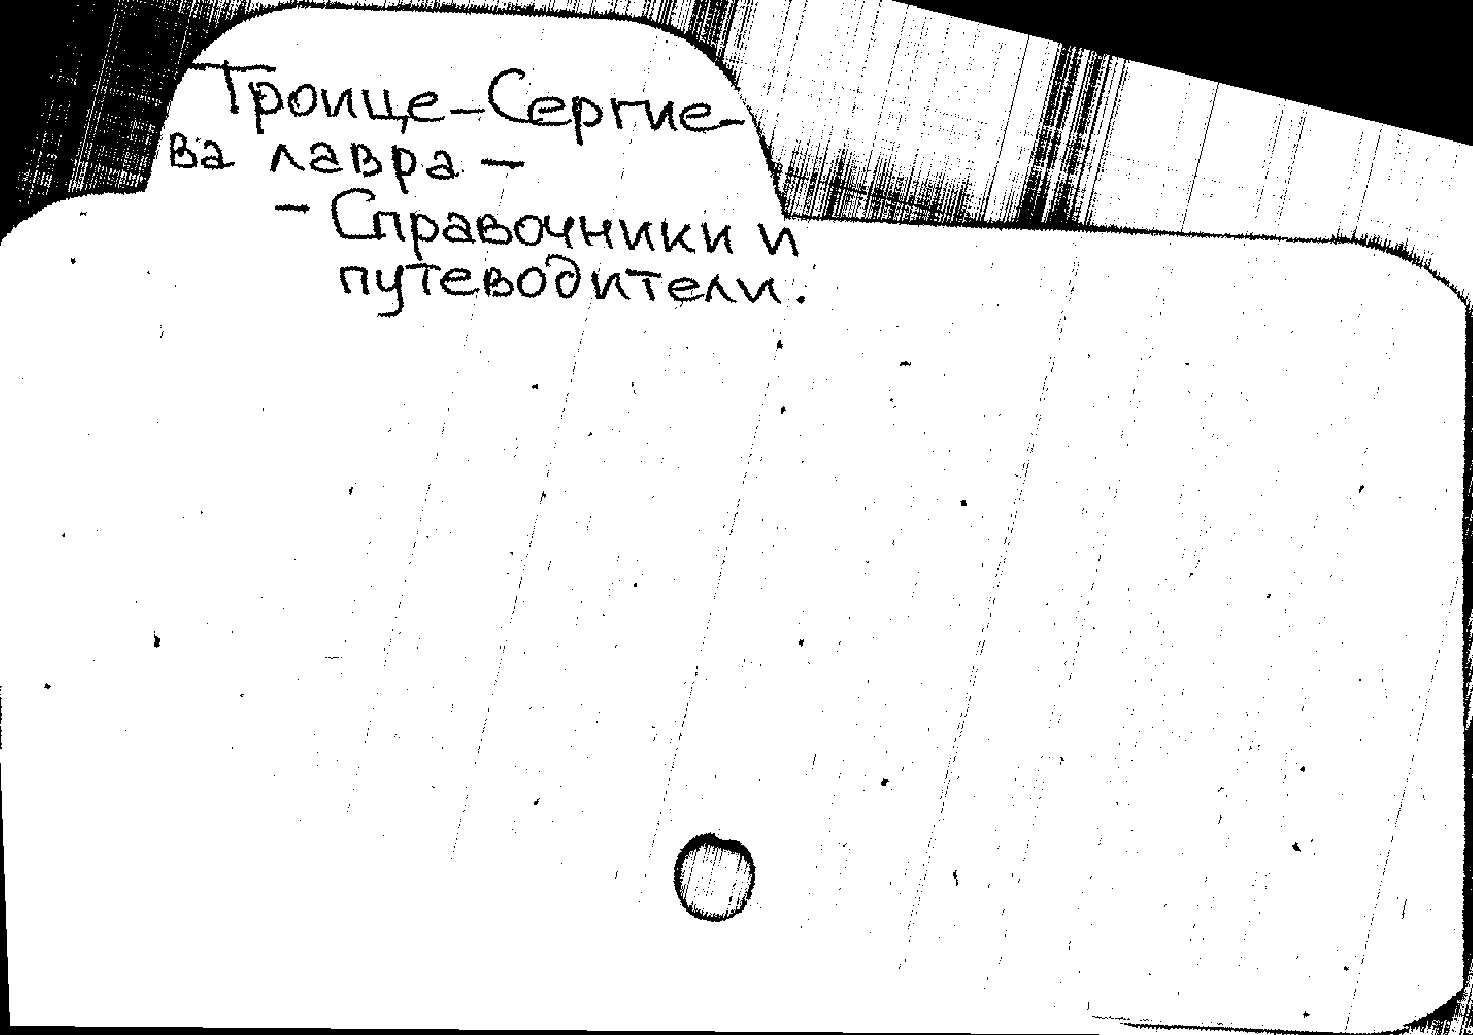 Троице-Сергие-
ва лавра –
– Справочники и
путеводители.